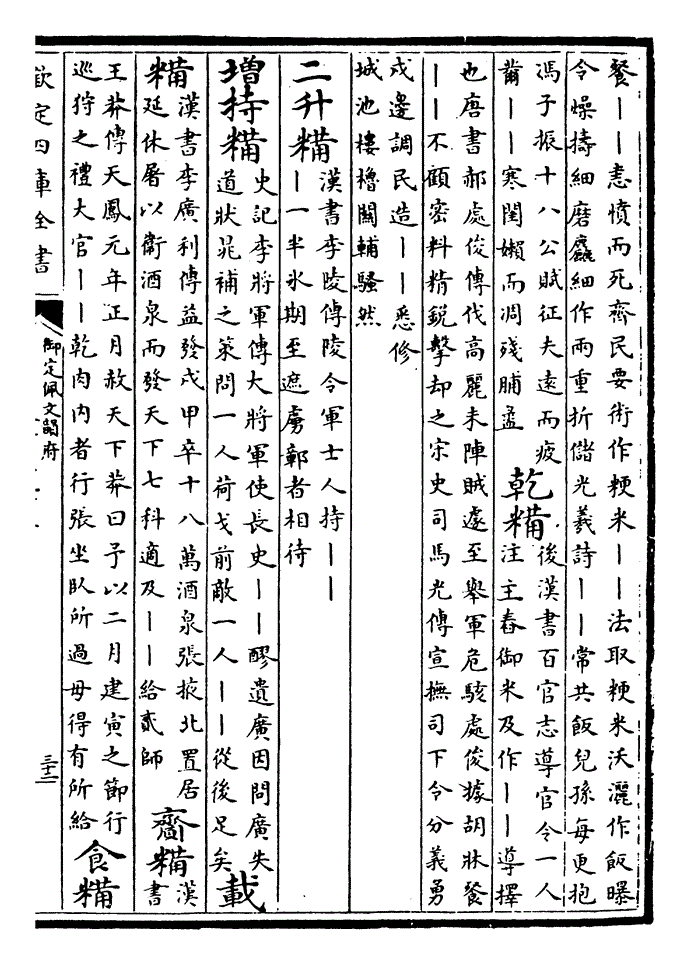 餐――恚憤而死齊民要術作粳米――法取粳米沃灑作飯曝
令燥擣細磨麤細作兩重折儲光羲詩――常共飯兒孫每更抱
馮子振十八公賦征夫遠而疲
薾――寒閨嬾而凋殘脯盝
乾糒
後漢書百官志導官令一人
注主舂御米及作――導擇
也唐書郝處俊傳伐高麗未陣賊遽至舉軍危駭處俊據胡牀餐
――不顧密料精銳擊却之宋史司馬光傳宣撫司下令分義勇
戍邊調民造――悉修
城池樓櫓關輔騷然
二升糒
漢書李陵傳陵令軍士人持――
―一半氷期至遮虜鄣者相待
増持糒
史記李將軍傳大將軍使長史――醪遺廣因問廣失
道狀晁補之策問一人荷戈前敵一人――從後足矣
載
糒
漢書李廣利傳益發戍甲卒十八萬酒泉張掖北置居
延休屠以衞酒泉而發天下七科適及――給貳師
齎糒
漢
書
王莽傳天鳳元年正月赦天下莽曰予以二月建寅之節行
巡狩之禮大官――乾肉内者行張坐臥所過毋得有所給
食糒
欽定四庫全書
御定佩文韻府
三十二